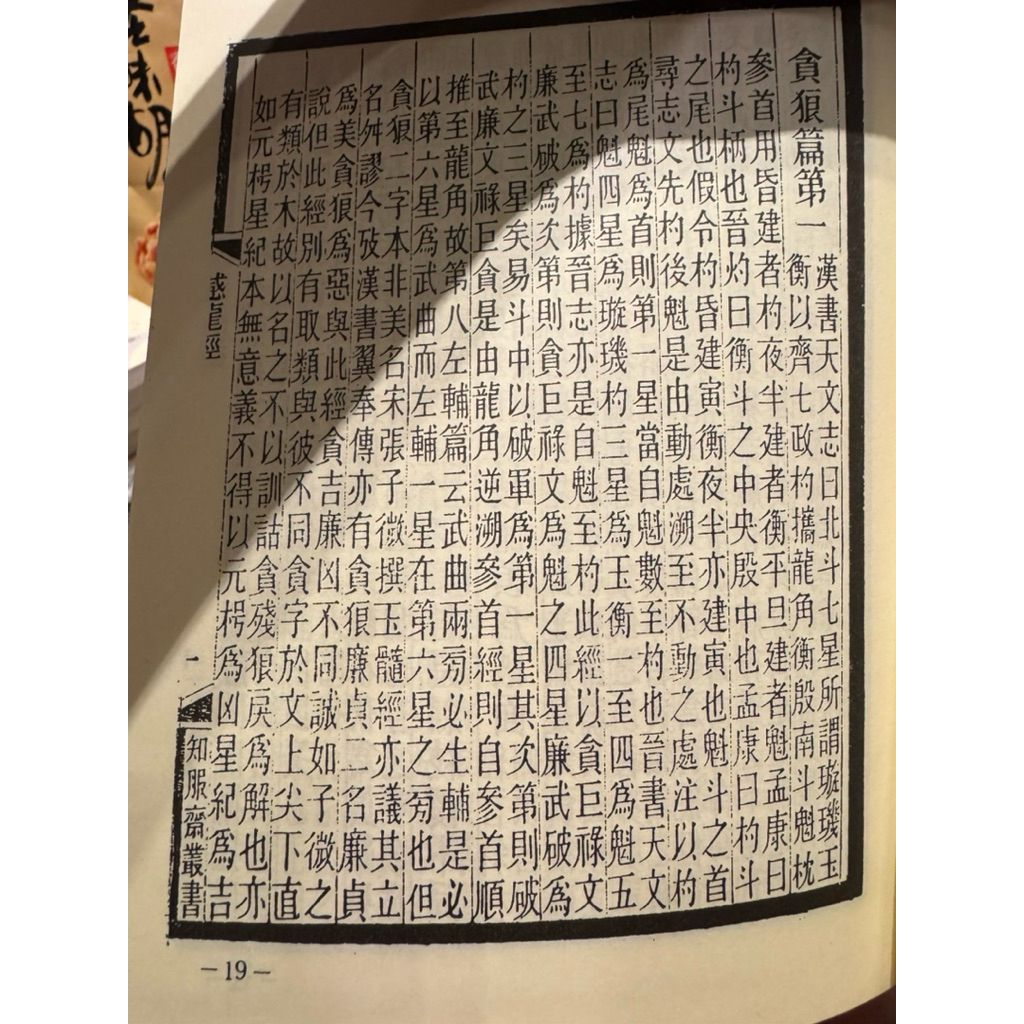 貪狼篇第一
漢書天文志曰北斗七星所謂璇璣玉
衡以齊七政杓攜龍角衡殷南斗魁枕
參首用昏建者杓夜半建者衡平旦建者魁孟康曰
杓斗柄也晉灼曰衡斗之中央殷中也孟康曰杓斗
之尾也假令杓昏建寅衡夜半亦建寅也魁斗之首
尋志文先杓後魁是由動處溯至不動之處注以杓
爲尾魁爲首則第一星當自魁數至杓也晉書天文
志曰魁四星爲璇璣杓三星爲玉衡一至四爲魁五
至七爲杓據晉志亦是自魁至杓此經以貪巨祿文
廉武破爲次第則貪巨祿文爲魁之四星廉武破爲
杓之三星矣易斗中以破軍爲第一星其次第則破
武廉文祿巨貪是由龍角逆溯參首經則自參首順
推至龍角故第八左輔篇云武曲兩旁必生輔是必
以第六星爲武曲而左輔一星在第六星之旁也但
貪狼二字本非美名宋張子微撰玉髓經亦議其立
名舛謬今攷漢書翼奉傳亦有貪狼廉貞二名廉貞
爲美貪狼爲惡與此經貪吉廉凶不同誠如子微之
說但此經別有取類與彼不同貪字於文上尖下直
有類於木故以名之不以訓詁貪殘狼戾爲解也亦
如元枵星紀本無意義不得以元枵爲凶星紀爲吉
撼龍經
一
知服齋叢書
—19—